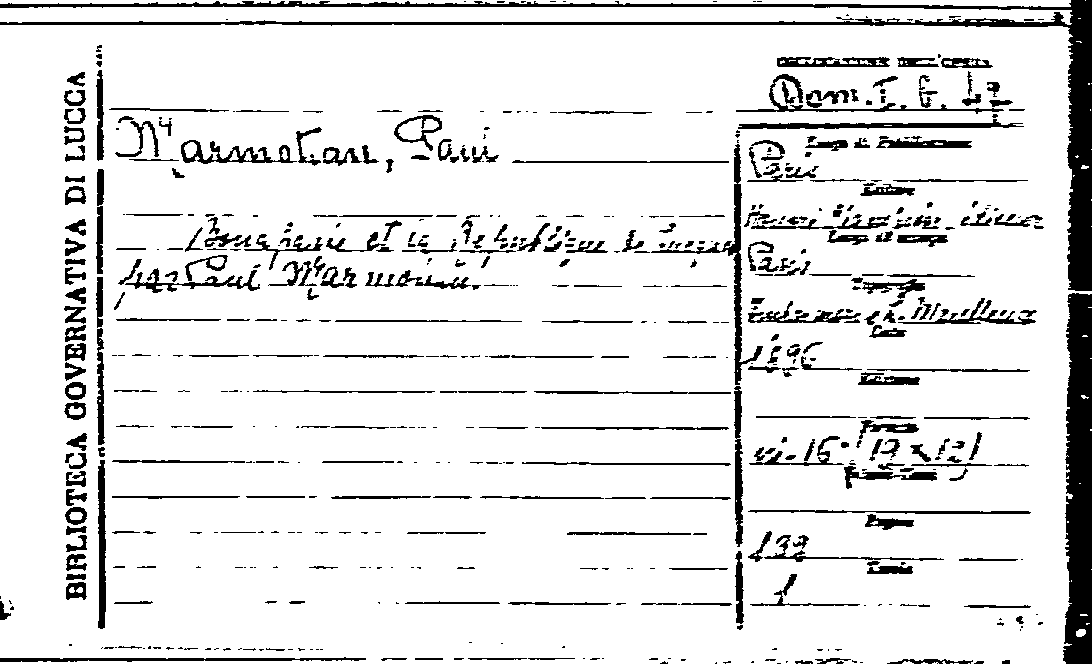 BIBLIOTECA GOVERNATIVA DI LUCCA
COLLOCAZIONE DELL'OPERA
Dom. I. G. 47
Marmottan, Paul
Bonaparte et la République de Lucques
par Paul Marmottan.
Luogo di Pubblicazione
Paris
Editore
Henri éditeur
Luogo di stampa
Paris
Tipografia
Data
1896
Edizione
Formato
in-16° (19 x 12)
Pagine
Tavole
1